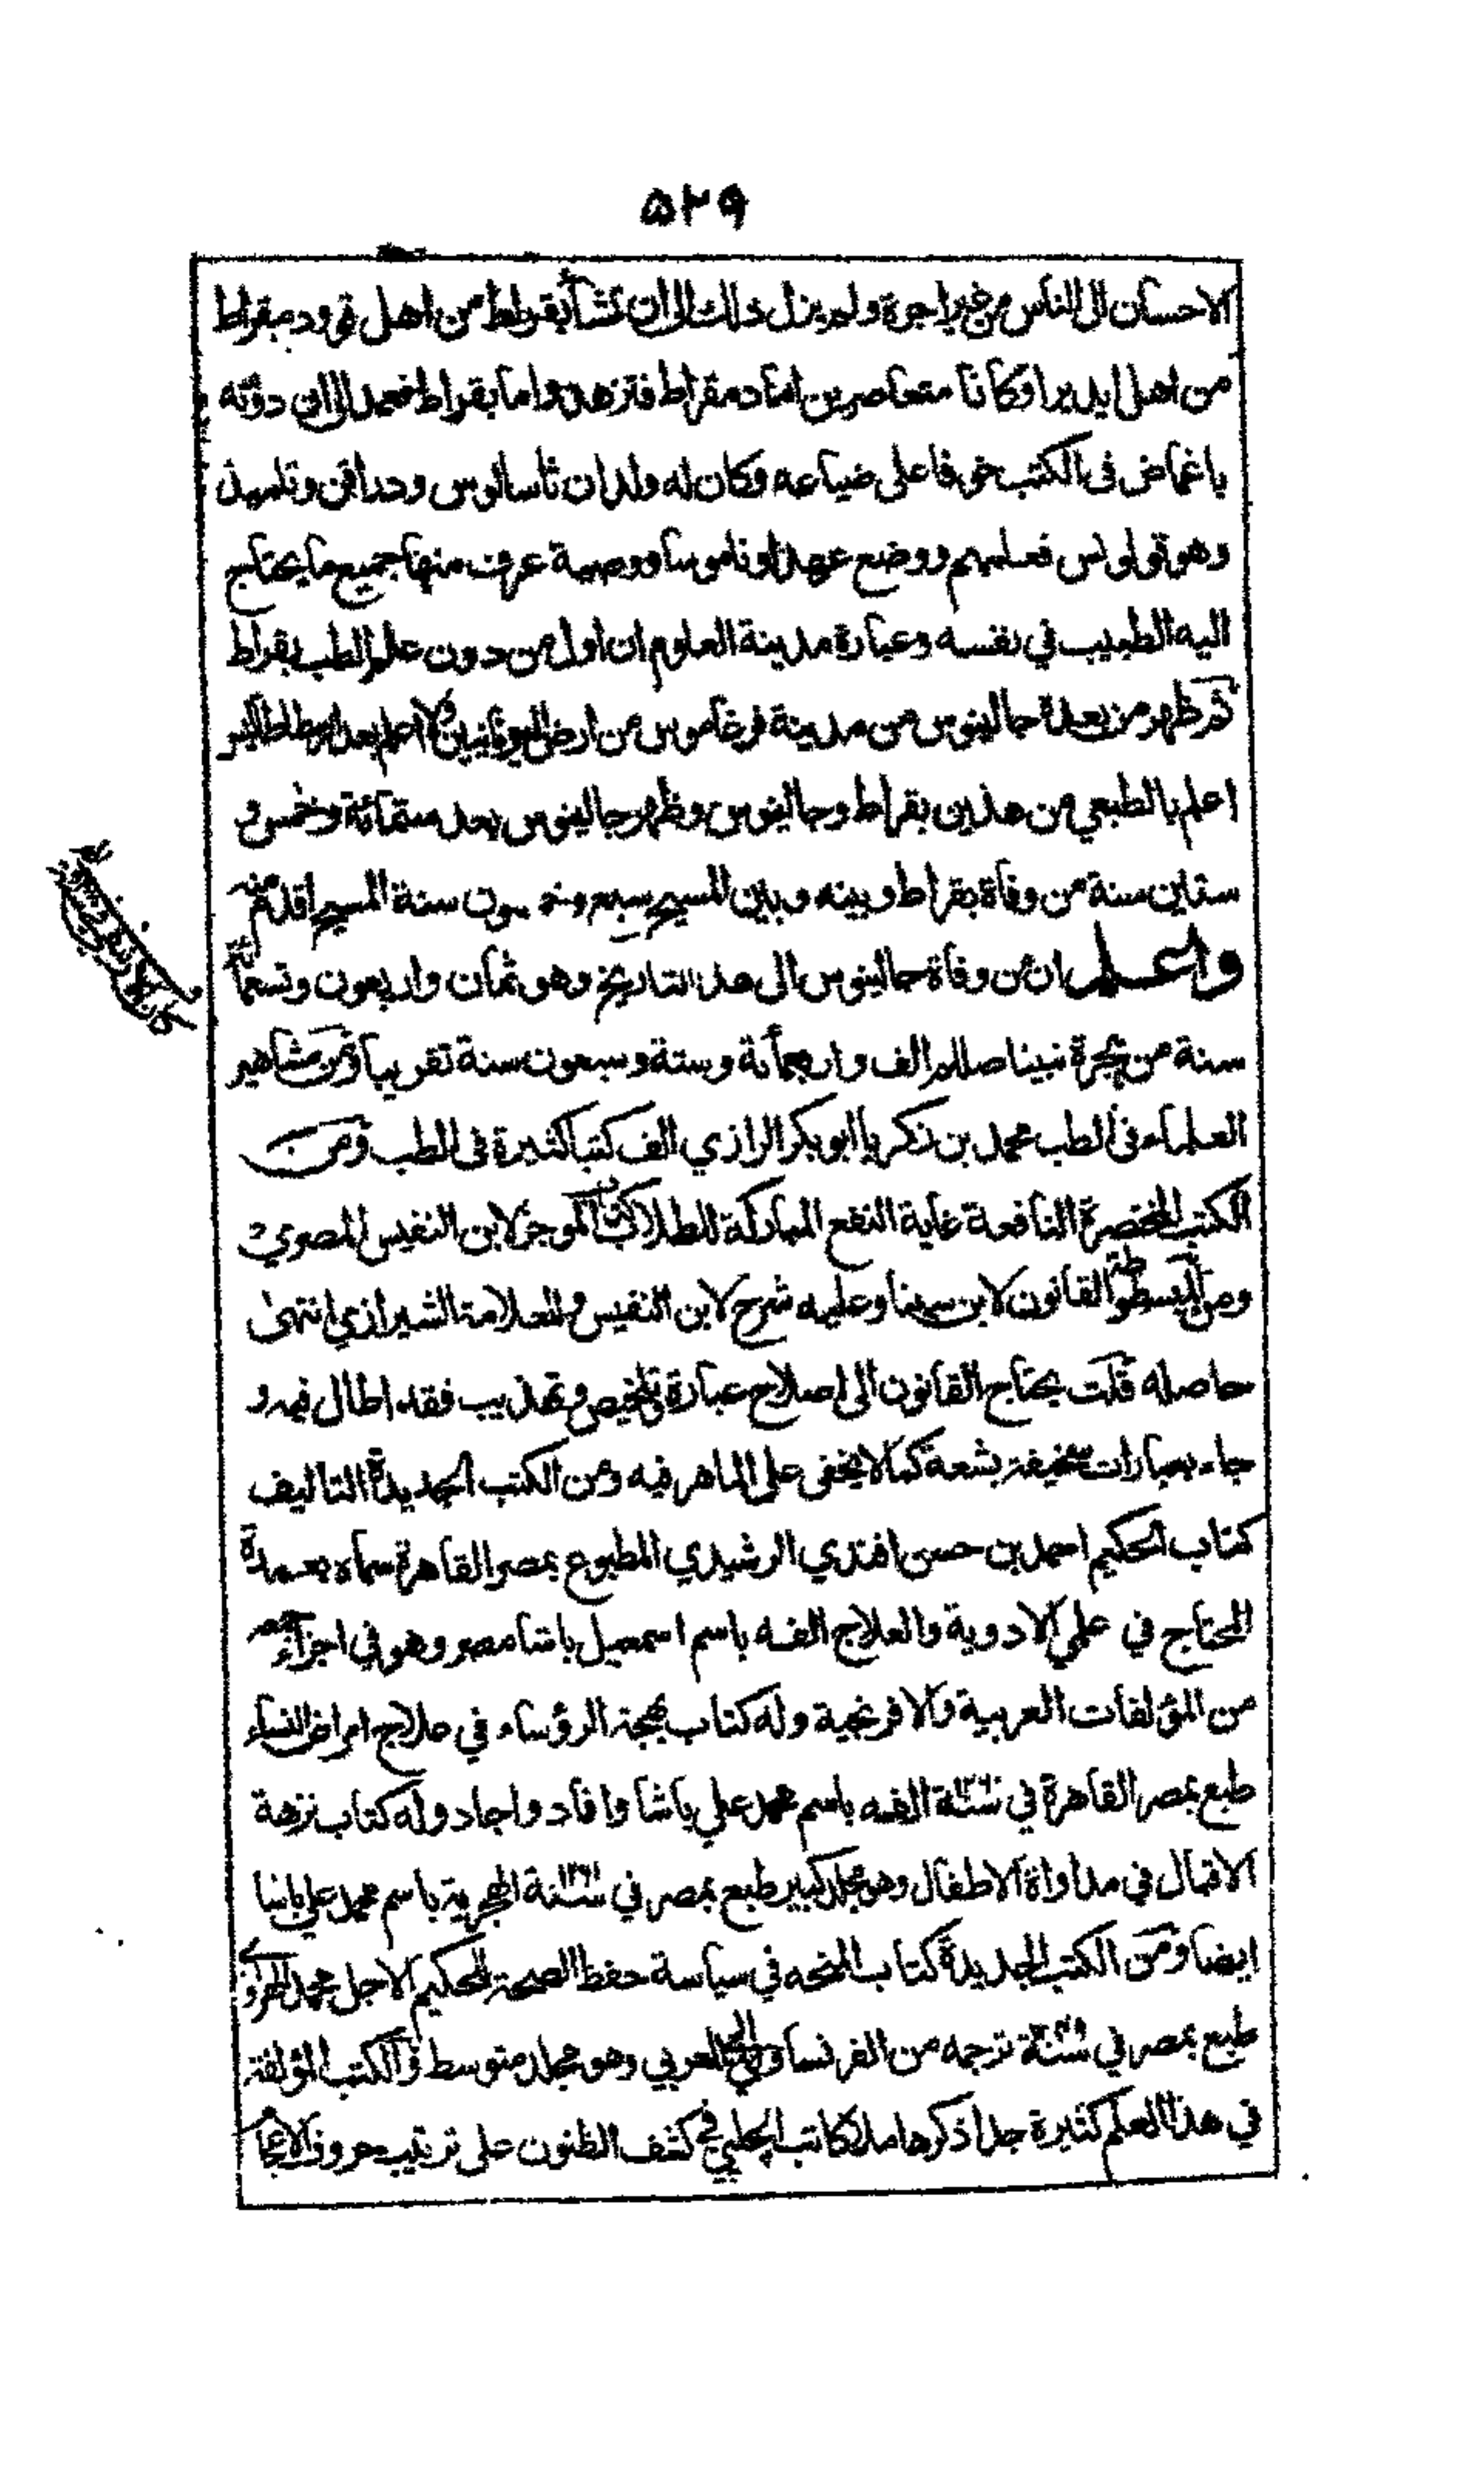 ٥٢٩
الاحسان الى الناس من غير اجرة ولم يزل ذلك الى ان نشأ بقراط من اهل قو ودمقراط
من اهل ابديرا وكانا متعاصرين اما دمقراط فتزهد واما بقراط فعمد الى ان دونه
باغماض فى الكتب خوفا على ضياعه وكان له ولدان ثاسالوس ودراقن وتلميذ
وهو قولولس فعلمهم ووضع عهدا وناموسا ووصية عرف منها جميع ما يحتاج
اليه الطبيب في نفسه وعبارة مدينة العلوم ان اول من دون علم الطب بقراط
ثم ظهر من بعده جالينوس من مدينة فرغاموس من ارض اليونانيين ولا اعلم بعد ارسطاطاليس
اعلم بالطبعي من هذين بقراط وجالينوس وظهر جالينوس بعد ستمائة وخمس و
ستين سنة من وفاة بقراط وبينه وبين المسيح سبع وخمسون سنة المسيح اقدم منه
واعلم ان من وفاة جالينوس الى هذا التاريخ وهو ثمان واربعون وتسعمائة
سنة من هجرة نبينا صللم الف واربعمأئة وستة وسبعون سنة تقريبا ومن مشاهير
العلماء فى الطب محمد بن زكريا ابو بكر الرازي الف كتبا كثيرة فى الطب ومن
الكتب المختصرة النافعة غاية النفع المباركة للطلاب كتاب الموجز لابن النفيس المصوي
ومن المبسوطة القانون لابن سينا وعليه شرح لابن النفيس وللعلامة الشيرازي انتهى
حاصله قلت يحتاج القانون الى اصلاح عبارة وتلخيص وتهذيب فقد اطال فيه و
جاء بعبارات سخيفة بشعة كما لا يخفى على الماهر فيه ومن الكتب الجديدة التاليف
كتاب الحكيم احمد بن حسن افندي الرشيدي المطبوع بمصر القاهرة سماه بعمدة
المحتاج في علمي الادوية والعلاج الفه باسم اسمعيل باشا مصر وهو في اجزاء
من المؤلفات العربية والافرنجية وله كتاب بهجة الرؤساء في علاج امراض النساء
طبع بمصر القاهرة في سنة الفه باسم محمد علي پاشا وافاد واجاد وله كتاب نزهة
الاقبال في مداواة الاطفال وهو مجلد كبير طبع بمصر في سنة الهجرية باسم محمد علي پاشا
ايضا ومن الكتب الجديدة كتاب المنحه في سياسة حفظ الصحة للحكيم الاجل محمد الهراوي
طبع بمصر في سنة ترجمه من الفرنساوي الى العربي وهو مجلد متوسط والكتب المؤلفة
في هذا العلم كثيرة جدا ذكرها ملا كاتب الجلبي في كشف الظنون على ترتيب حروف الاعجام